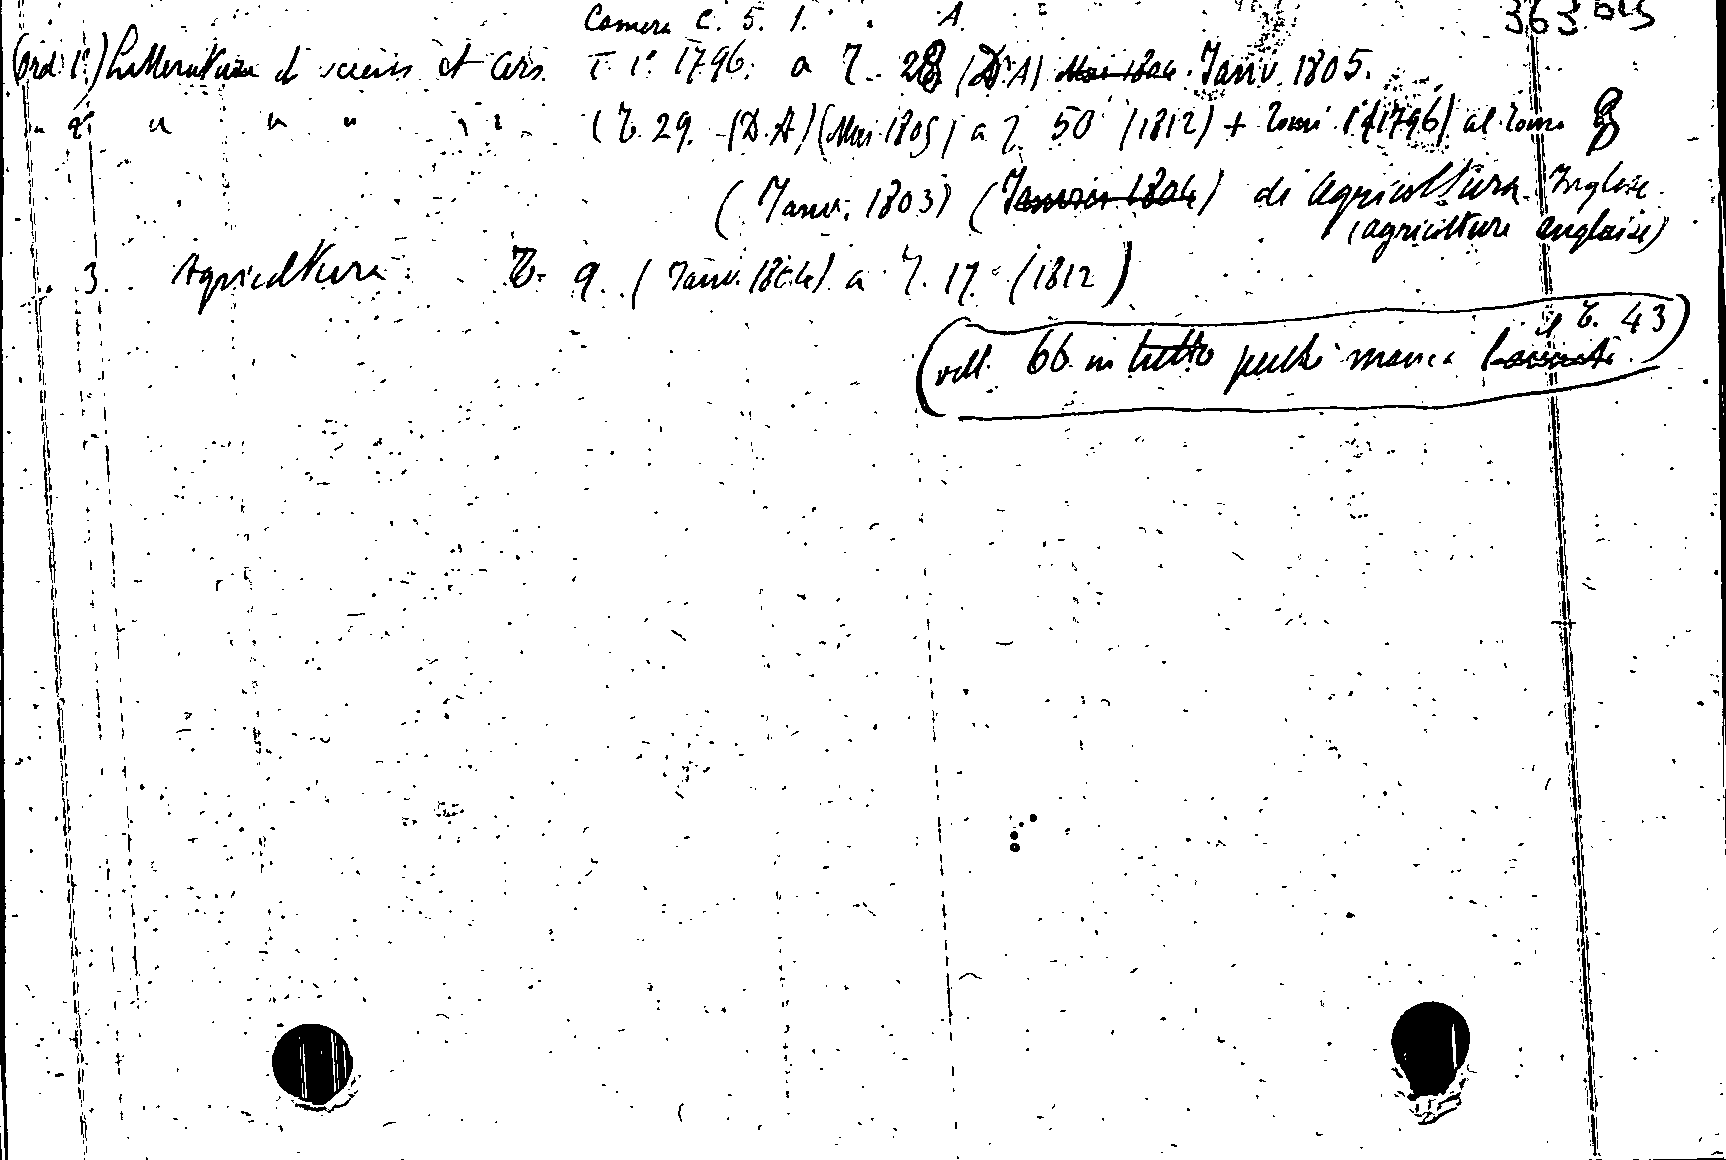 Camera C. 5. 1. A. 363 bis
(ord 1°) Letteratura et sciens et ars. T. 1° 1796. a T. 28 (D.A) Mai 1804. Janv. 1805.
" 2° " " " " (T. 29. (D.A) (Mai 1805) a T. 50 (1812) + Tomi 1° (1796) al Tomo 8
(Janv. 1803) (Janvier 1804) di Agricoltura Inglese
(agriculture anglaise)
" 3. Agricoltura. T. 9. (Janv. 1804) a T. 17. (1812)
(voll. 66 in tutto perchè manca il T. 43)